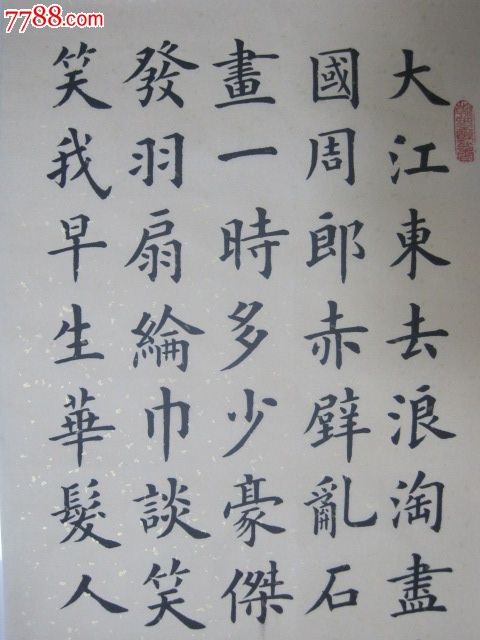 7788.com
大江東去浪淘盡
國周郎赤壁亂石
畫一時多少豪傑
發羽扇綸巾談笑
笑我早生華髮人